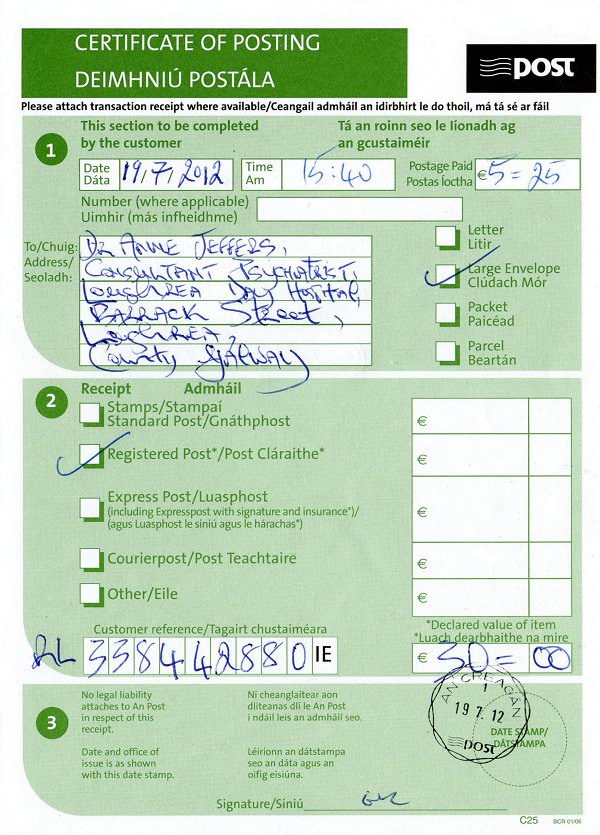 CERTIFICATE OF POSTING
DEIMHNIÚ POSTÁLA
post
Please attach transaction receipt where available/Ceangail admháil an idirbhirt le do thoil, má tá sé ar fáil
1
This section to be completed by the customer
Tá an roinn seo le líonadh ag an gcustaiméir
Date Dáta 19/7/2012
Time Am 15:40
Postage Paid Postas íoctha €5=25
Number (where applicable)
Uimhir (más infheidhme)
To/Chuig:
Address/
Seoladh:
DR ANNE JEFFERS,
CONSULTANT PSYCHIATRIST,
LOUGHREA DAY HOSPITAL,
BARRACK STREET,
LOUGHREA,
COUNTY GALWAY
Letter
Litir
Large Envelope
Clúdach Mór
Packet
Paicéad
Parcel
Beartán
2
Receipt Admháil
Stamps/Stampaí
Standard Post/Gnáthphost
€
Registered Post*/Post Cláraithe*
€
Express Post/Luasphost
(including Expresspost with signature and insurance*)/
(agus Luasphost le siniú agus le hárachas*)
€
Courierpost/Post Teachtaire
€
Other/Eile
€
Customer reference/Tagairt chustaiméara
*Declared value of item
*Luach dearbhaithe na míre
RL 338442880 IE
€ 30=00
3
No legal liability
attaches to An Post
in respect of this
receipt.
Ní cheanglaítear aon
dliteanas dlí le An Post
i ndáil leis an admháil seo.
Date and office of
issue is as shown
with this date stamp.
Léiríonn an dátstampa
seo an dáta agus an
oifig eisiúna.
AN CREAGÁN
1
19 7. 12
post
DATE STAMP/
DÁTSTAMPA
Signature/Siniú
C25 BCR 01/06